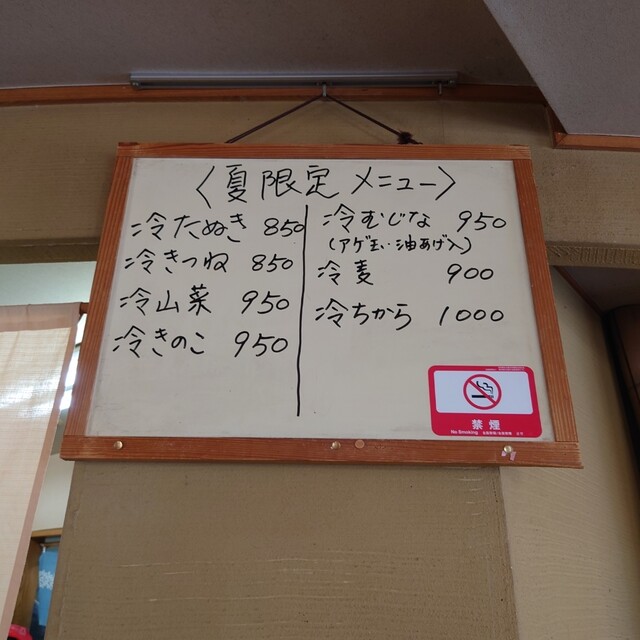 〈夏限定メニュー〉
冷たぬき 850
冷きつね 850
冷山菜 950
冷きのこ 950
冷むじな 950
(アゲ玉・油あげ入)
冷麦 900
冷ちから 1000
禁煙
No Smoking